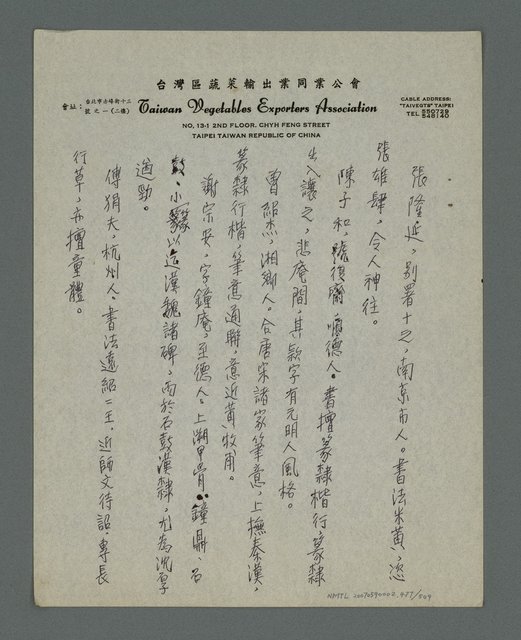 台灣區蔬菜輸出業同業公會
會址：台北市赤峰街十三號之一(二樓)
Taiwan Vegetables Exporters Association
NO, 13-1 2ND FLOOR. CHYH FENG STREET
TAIPEI TAIWAN REPUBLIC OF CHINA
CABLE ADDRESS:
"TAIVEGTS" TAIPEI
TEL 550729
546140
張隆延，別署十之，南京市人。書法米黃，恣
張雄肆，令人神往。
陳子和，號須齋，順德人。書擅篆隸楷行，篆隸
出入讓之，悲庵間，其款字有元明人風格。
曾紹杰，湘鄉人。合唐宋諸家筆意，上撫秦漢，
篆隸行楷，筆意通聯，意近黃牧甫。
謝宗安，字鐘庵，至德人。上溯甲骨、鐘鼎、石
鼓、小篆以迄漢魏諸碑，而於石鼓漢隸，尤為沈厚
遒勁。
傅狷夫，杭州人。書法遠紹二王，近師文待詔，專長
行草，亦擅童體。
NMTL 20070590002 477/509